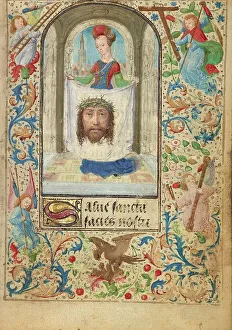 Salue sancta
facies nostri